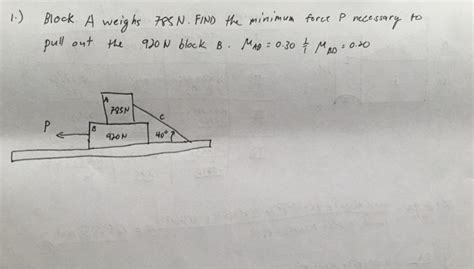 1.) Block A weighs 785N. FIND the minimum force P necessary to
pull out the 920 N block B. μAB = 0.30 & μBD = 0.20
A
785N
C
P
B
920N
40°